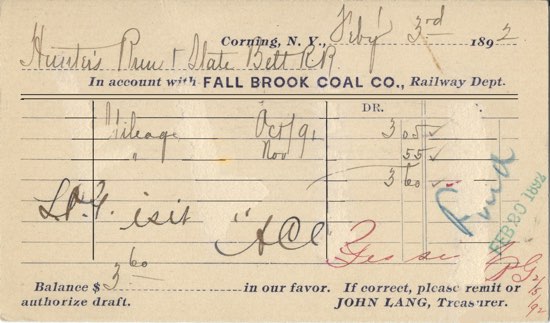 Corning, N. Y., Feby 3rd 1892
Hunter's Run & Slate Belt RR
In account with FALL BROOK COAL CO., Railway Dept.
DR. C.
Mileage Oct/91 3 05 ✓
" Nov 55 ✓
3 60
isit "
Paid
FEB 20 1892
Yes
2/5/92
Balance $ 3 60 in our favor. If correct, please remit or
authorize draft. JOHN LANG, Treasurer.